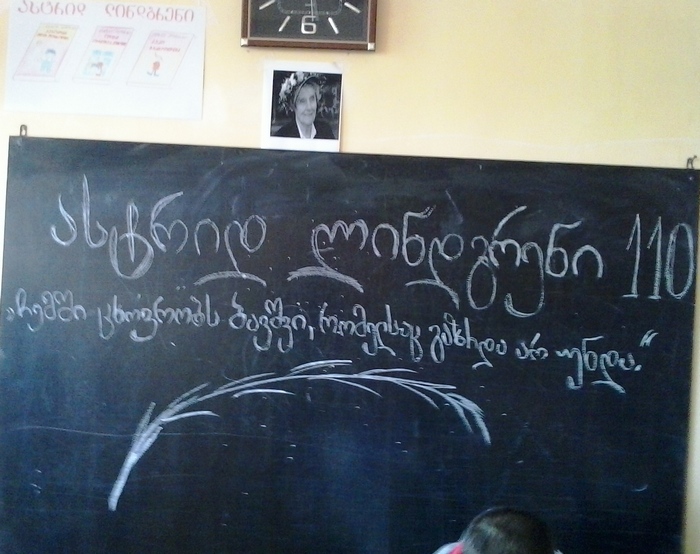 ასტრიდ ლინდგრენი
6
ასტრიდ ლინდგრენი 110
„ჩემში ცხოვრობს ბავშვი, რომელსაც გაზრდა არ უნდა.“